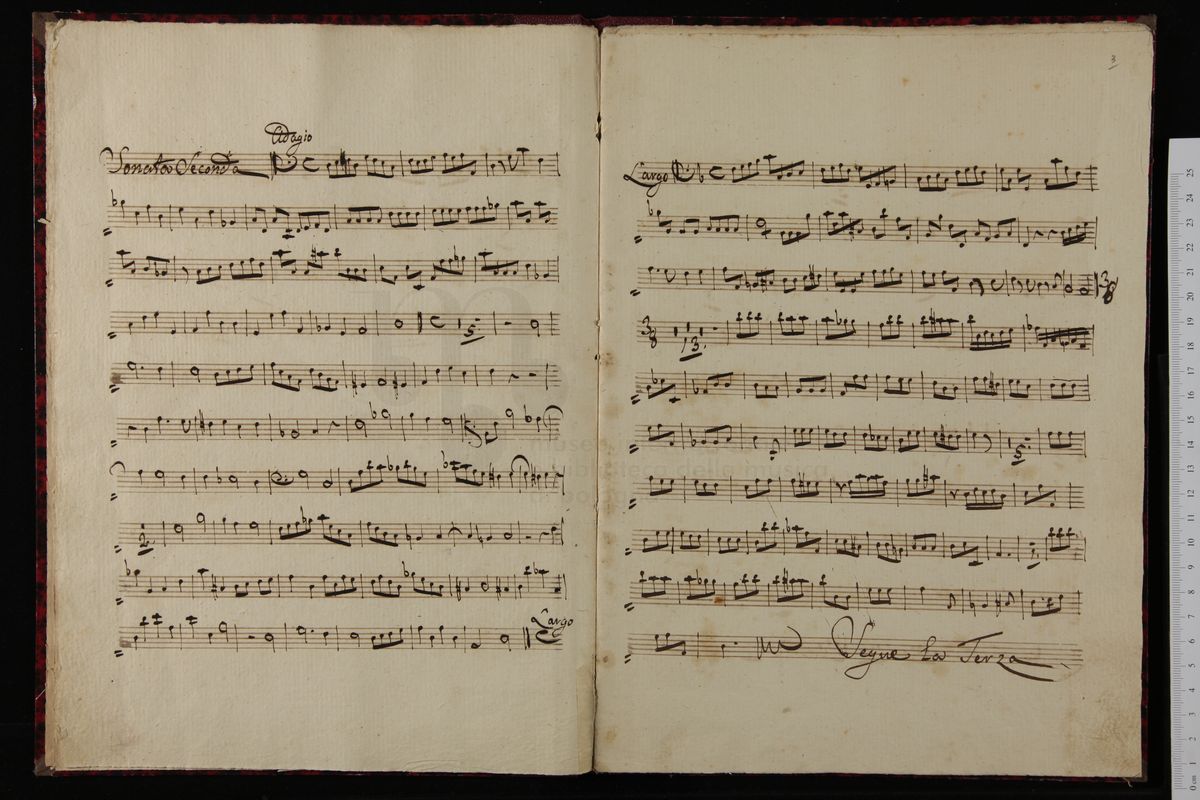 Adagio
Sonata Seconda
5
2
Largo
3
Largo
3/8
3/8
13
5
2
Segue La Terza
museo internazionale
e biblioteca della musica
di bologna
25
24
23
22
21
20
19
18
17
16
15
14
13
12
11
10
9
8
7
6
5
4
3
2
1
0 cm